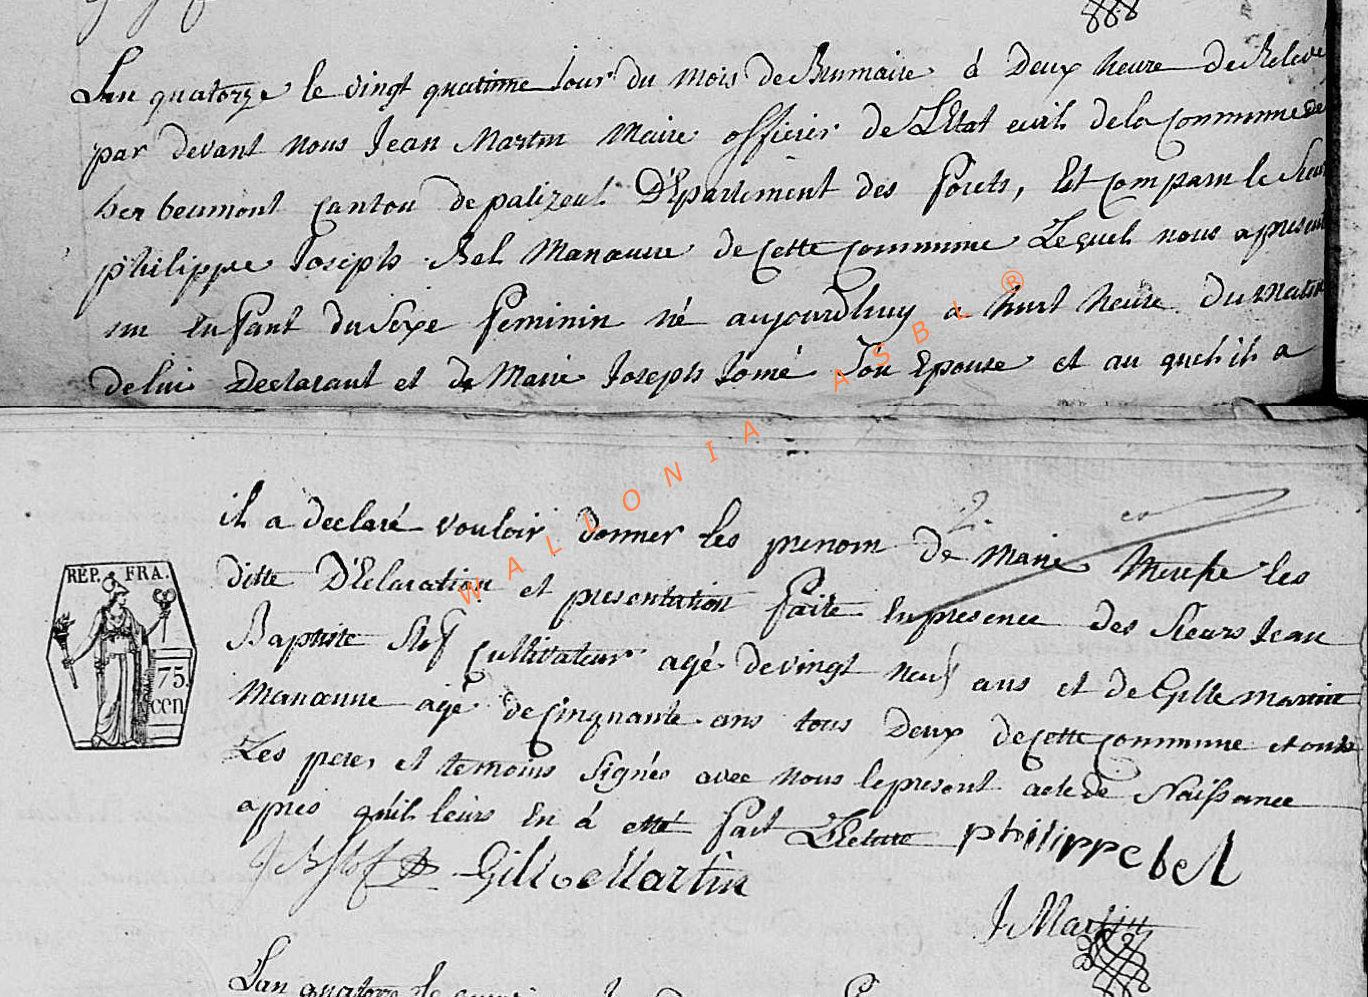 Lan quatorze le vingt quatrime Jour du mois de Brumaire à Deux heure de Relevé
par devant nous Jean Martin Maire officier de L'Etat civil de la Commune de
herbeumont Canton de palizeul D'Epartement des forets, Est comparu le Sieur
philippe Joseph Bel Manœuvre de Cette Commune Lequel nous a presenté
un Enfant du Sexe feminin né aujourd'huy a huit heure du matin
de lui Declarant et de Marie Joseph Jomé Son Epouse et au quel il a
il a declaré vouloir donner les prenom de Marie les
ditte D'Eclaration et presentation faite En presence des Sieurs Jean
Baptiste Stof Cultivateur agé de vingt neuf ans et de Gille martin
Manœuvre agé de Cinquante ans tous Deux de Cette Commune et onts
Les pere et temoins Signés avec nous le present acte de Naissance
apres qu'il leurs En á etté fait Lecture philippe bel
REP. FRA.
75.
cen
J B Stof Gille Martin
J Martin
Lan quatorze le
WALLONIA ASBL ®